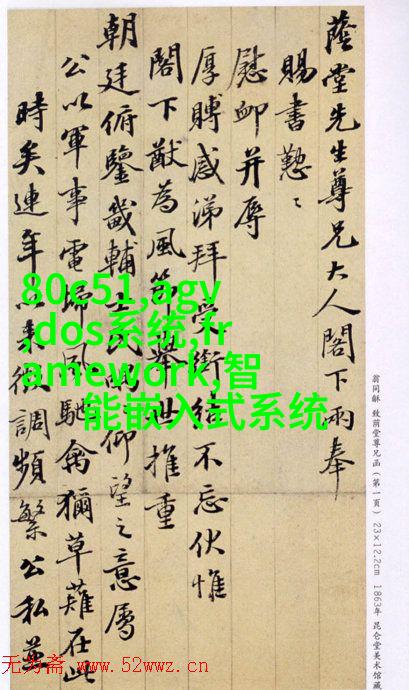 蔭堂先生尊兄大人閣下兩奉
賜書懃〻
慰卹并辱
厚賻感涕拜受銜結不忘伏惟
閣下猷為風節舉世推重
朝廷俯鑒畿輔士民喁〻仰望之意屬
公以軍事電掃風馳禽獮草薙在此
時矣連年以來徵調頻繁公私並
80c51,agv
,dos系统,fr
amework,智
能嵌入式系统
翁同龢 致荫堂尊兄函(第一页) 23×12.2cm 1863年 昆仑堂美术馆藏
无为斋 www.52wwz.cn